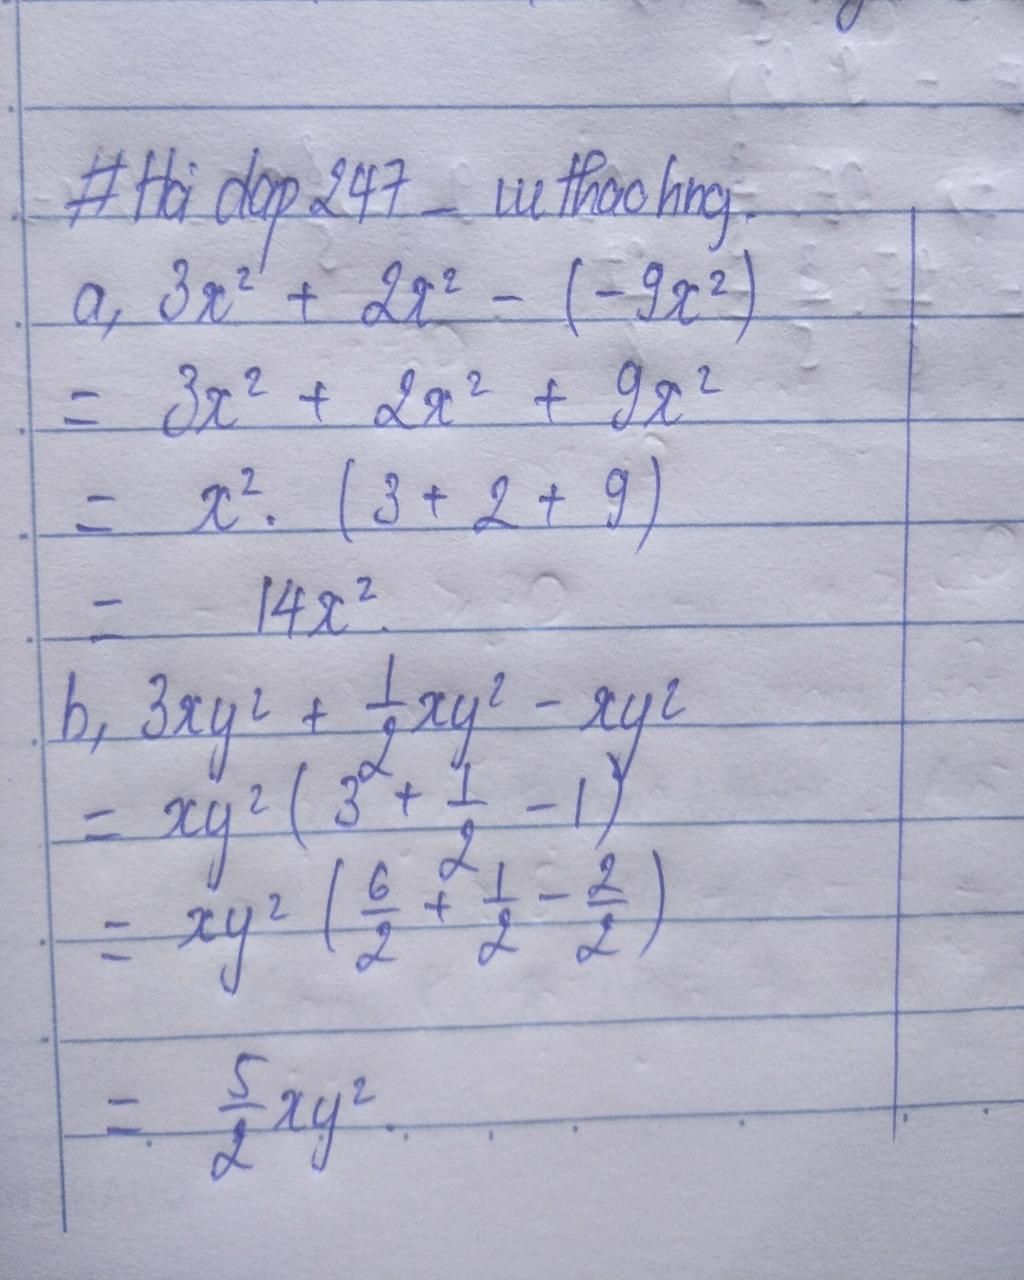 #Hỏi dap 247 _ thaohng.
a, 3x² + 2x² - (-9x²)
= 3x² + 2x² + 9x²
= x². (3 + 2 + 9)
= 14x².
b, 3xy² + 1/2 xy² - xy²
= xy² (3 + 1/2 - 1)
= xy² (6/2 + 1/2 - 2/2)
= 5/2 xy².